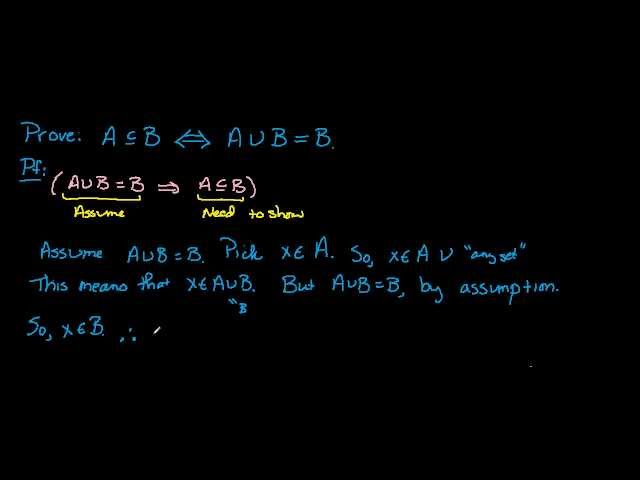 Prove: A ⊆ B ⟺ A ∪ B = B.
Pf:
( A∪B = B ⟹ A ⊆ B )
Assume Need to show
Assume A∪B = B. Pick x ∈ A. So, x ∈ A ∪ "any set"
This means that x ∈ A∪B. But A∪B = B, by assumption.
"B
So, x ∈ B. ∴